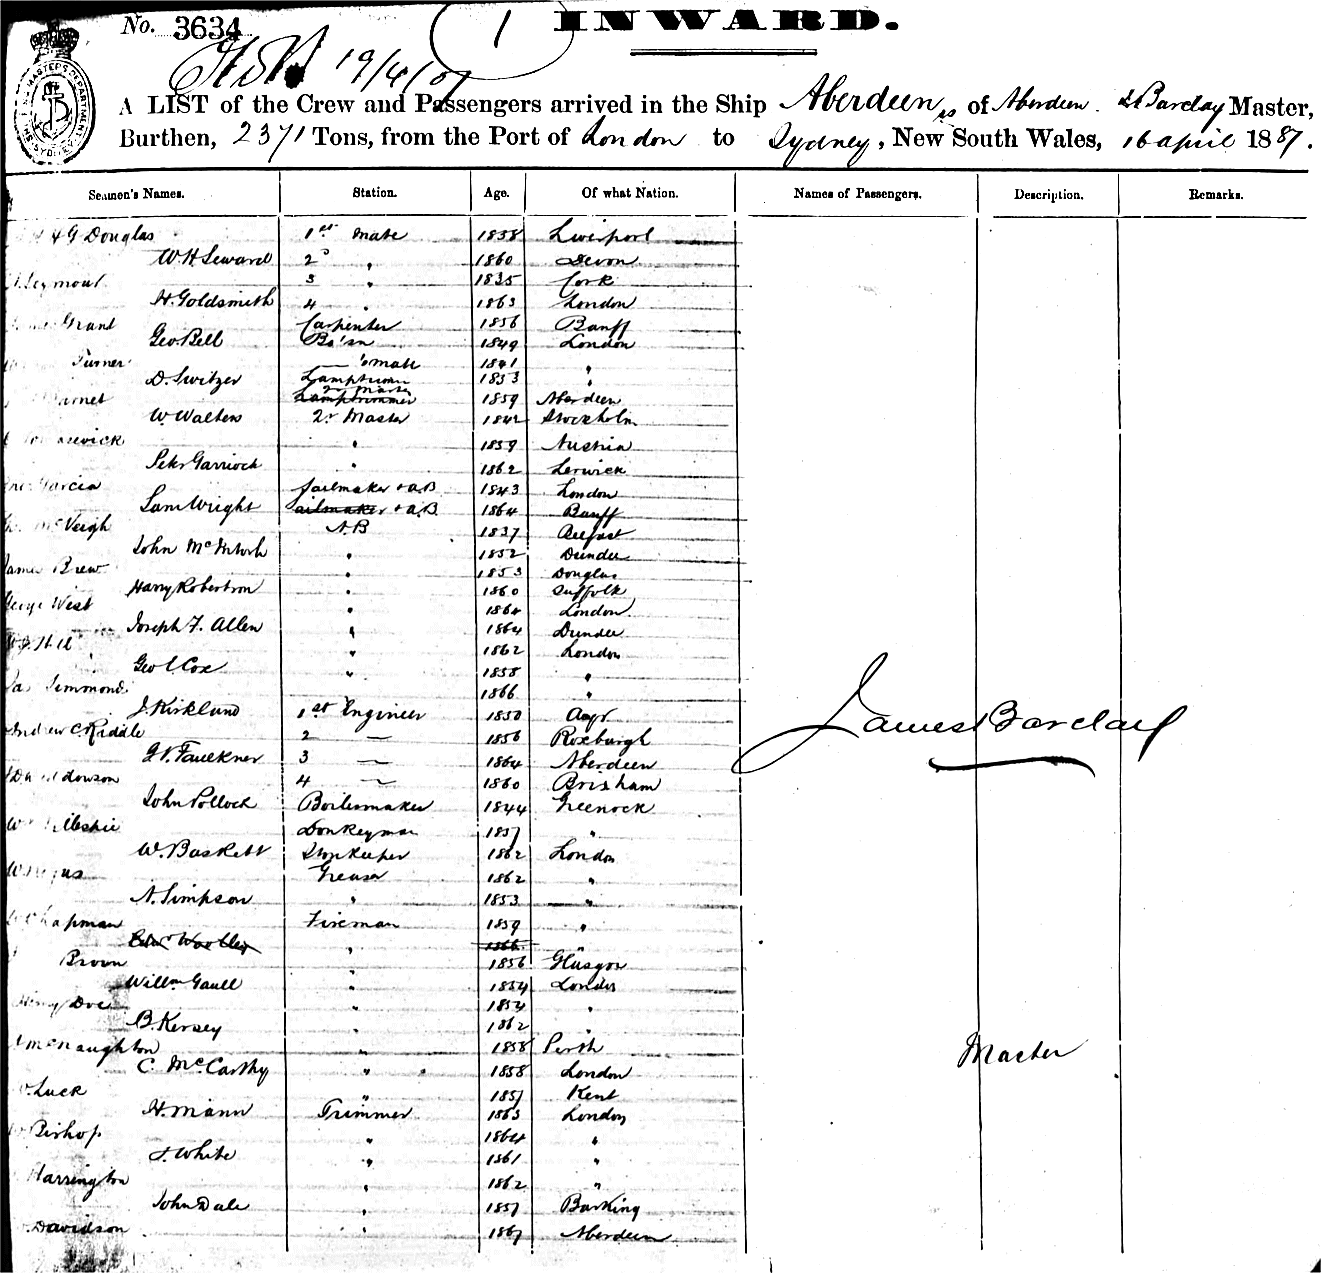 No. 3634
1
INWARD.
19/4/87
A LIST of the Crew and Passengers arrived in the Ship Aberdeen ss of Aberdeen. Barclay Master,
Burthen, 2371 Tons, from the Port of London to Sydney, New South Wales, 16 April 1887.
Seamen's Names. Station. Age. Of what Nation. Names of Passengers. Description. Remarks.
G Douglas 1st Mate 1858 Liverpool
W. H. Leward 2d " 1860 Devon
Seymour 3 " 1835 Cork
H. Goldsmith 4 " 1863 London
Grant Carpenter 1856 Banff
Geo Bell Bo'sn 1849 London
Turner " mate 1841 "
D. Switzer Lamptrimmer 1853 "
Lamptrimmer 2r Master 1859 Aberdeen
W. Walters 2r Master 1842 Stockholm
" 1859 Austria
Peter Garriock " 1862 Lerwick
Garcia Sailmaker & A.B 1843 London
Sam Wright Sailmaker & A.B. 1864 Banff
McVeigh A.B 1837 Belfast
John McIntosh " 1852 Dundee
James Brew " 1853 Douglas
Harry Robertson " 1860 Suffolk
George West " 1864 London
Joseph F. Allen " 1864 Dundee
" 1862 London
Geo C. Cox " 1858 "
Simmonds 1866 "
J. Kirkland 1st Engineer 1850 Ayr
Andrew C Riddle 2 — 1856 Roxburgh
Faulkner 3 — 1864 Aberdeen
4 — 1860 Brixham
John Pollock Boilermaker 1844 Greenock
Donkeyman 1857 "
W. Baskett Storekeeper 1862 London
Greaser 1862 "
A. Simpson " 1853 "
Chapman Fireman 1859 "
Woolley " 1866 "
Brown " 1856 Glasgow
Willm Gaull " 1854 London
Doe " 1854 "
B. Kersey " 1862 "
McNaughton " 1858 Perth
C. McCarthy " 1858 London
Luck " 1857 Kent
H. Mann Trimmer 1863 London
Bishop " 1864 "
White " 1861 "
Harrington " 1862 "
John Dale " 1857 Barking
Davidson " 1867 Aberdeen
James Barclay
Master